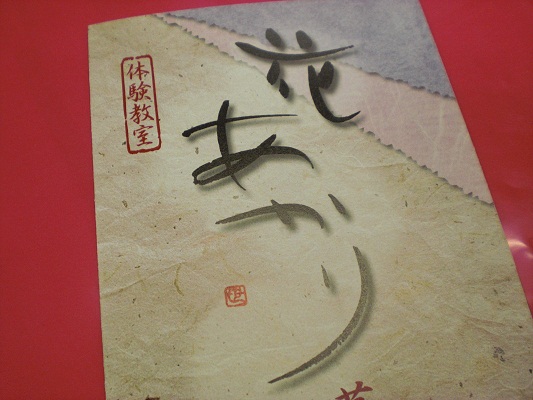 体験教室
花あかり